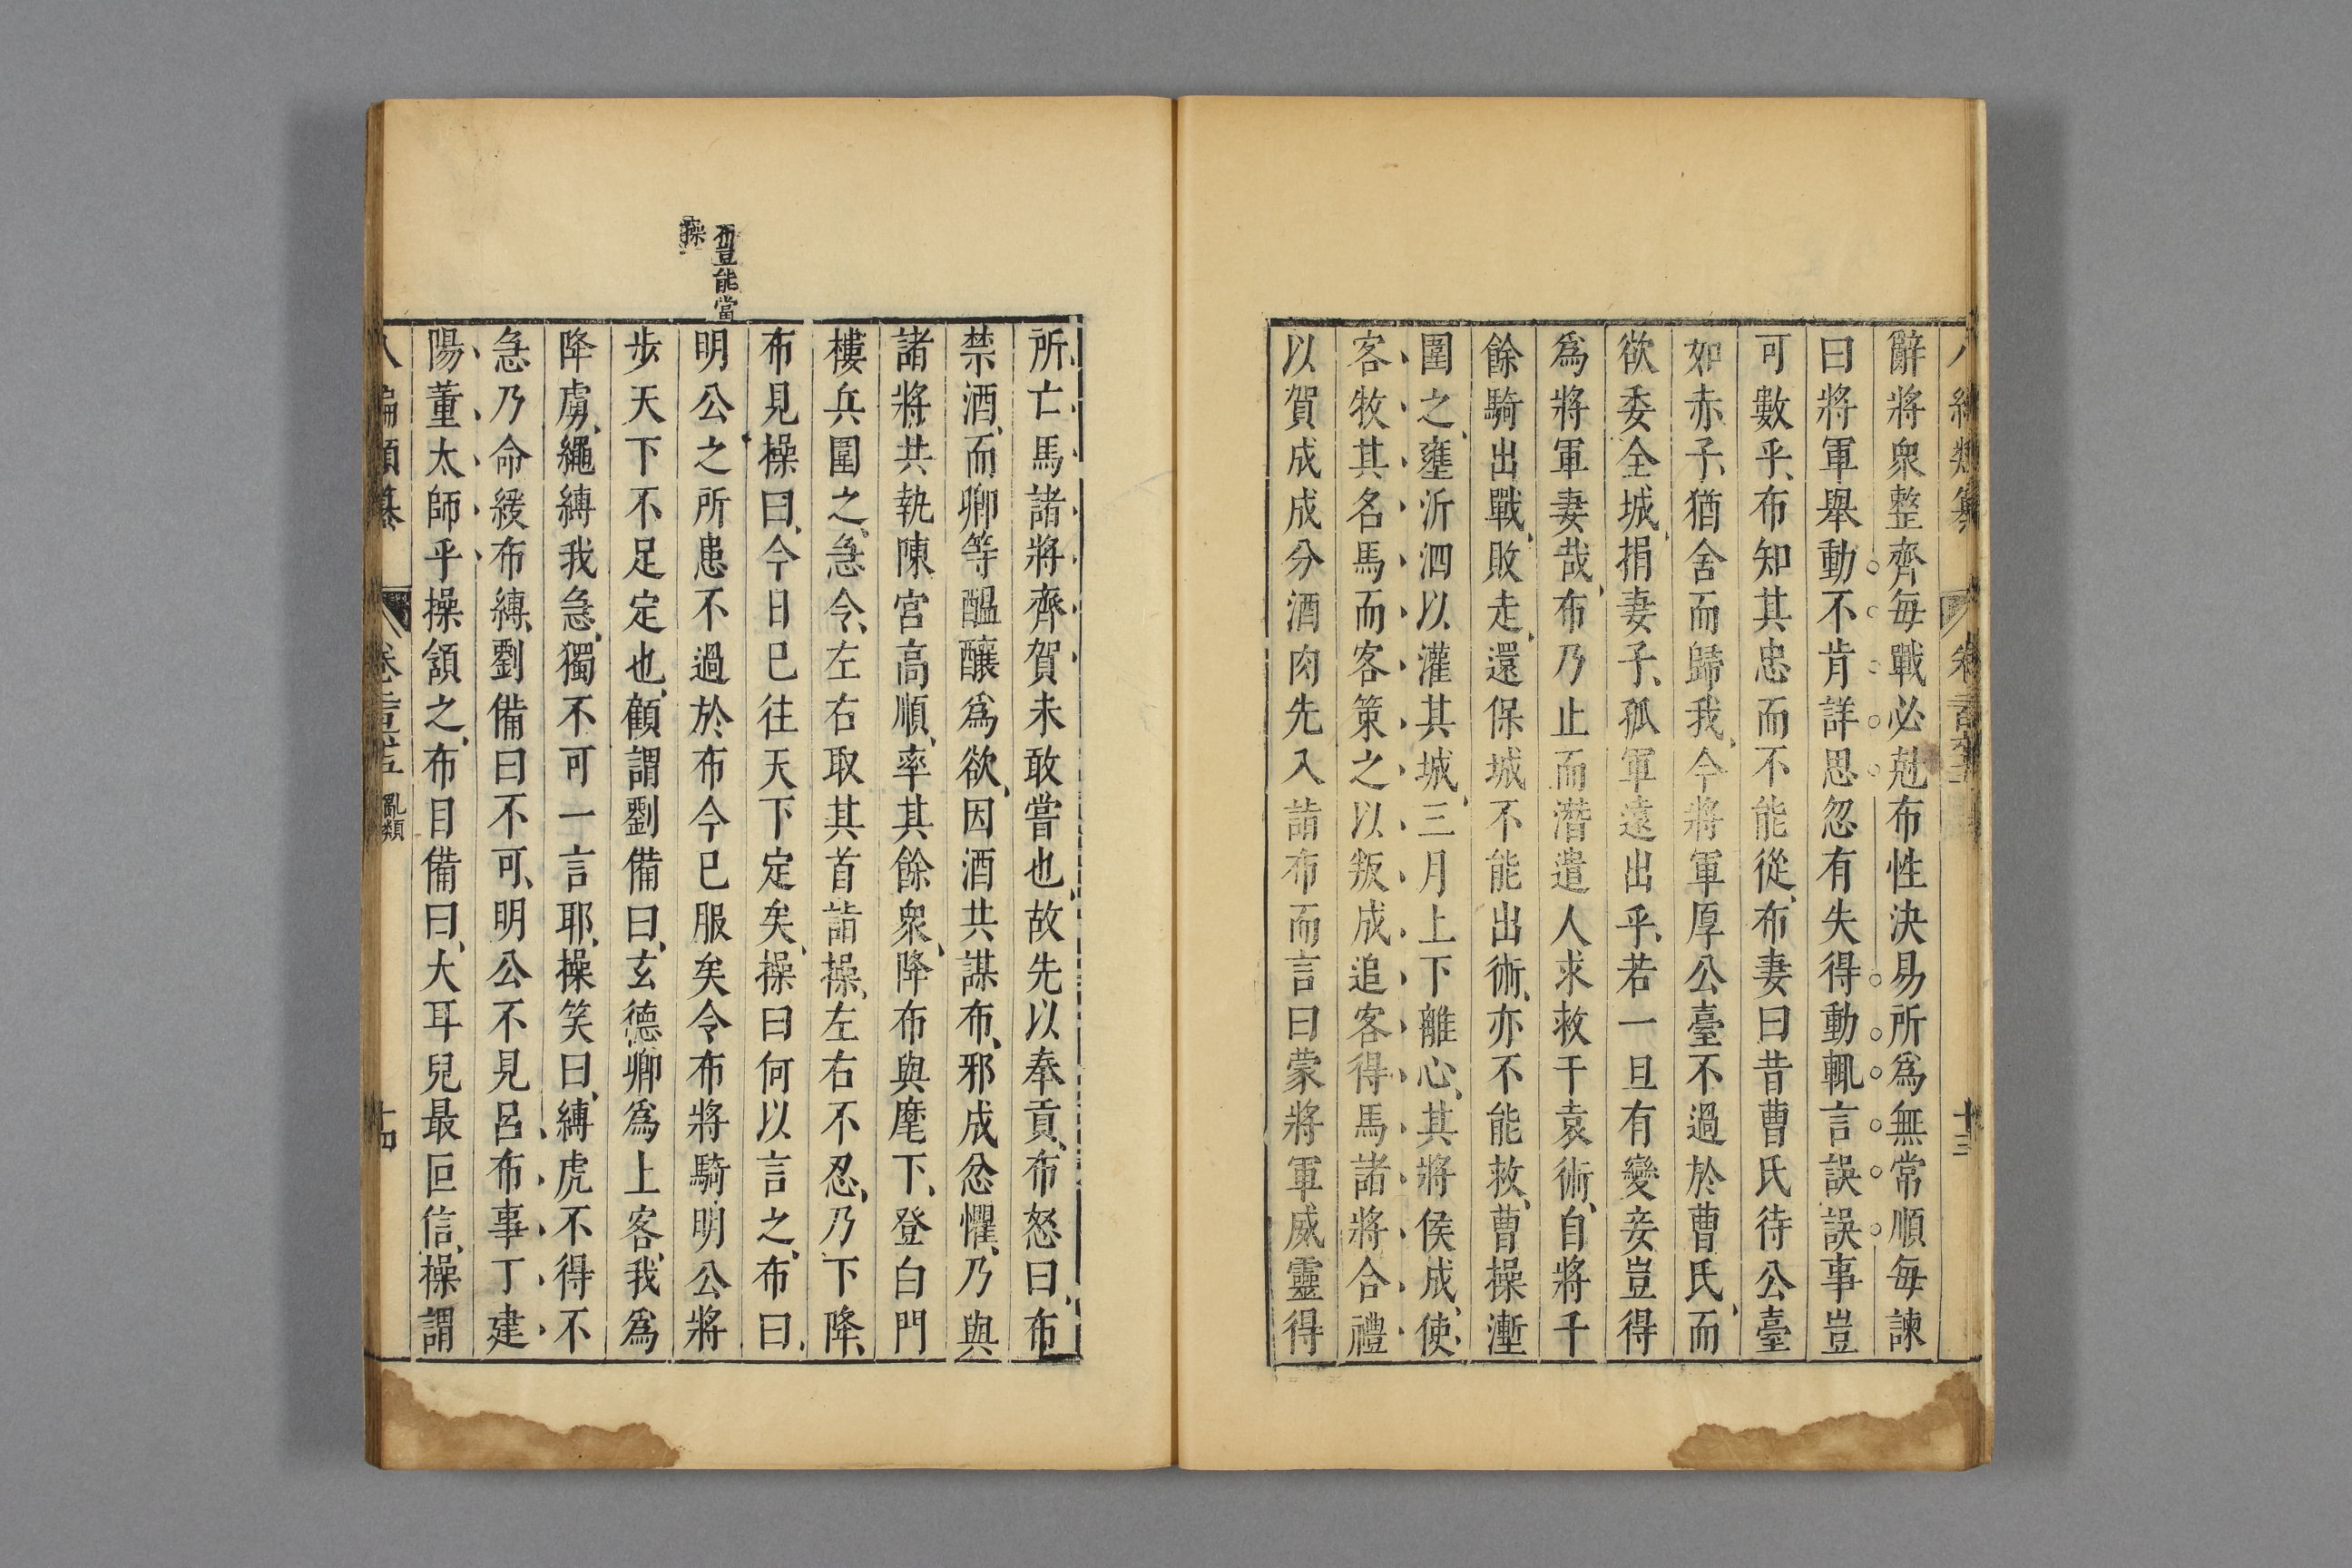 八編類纂 卷 十三
辭將衆整齊每戰必尅布性決易所爲無常順每諫
曰將軍舉動不肯詳思忽有失得動輒言誤誤事豈
可數乎布知其忠而不能從布妻曰昔曹氏待公臺
如赤子猶舍而歸我今將軍厚公臺不過於曹氏而
欲委全城捐妻子孤軍遠出乎若一旦有變妾豈得
爲將軍妻哉布乃止而潛遣人求救于袁術自將千
餘騎出戰敗走還保城不能出術亦不能救曹操壍
圍之壅沂泗以灌其城三月上下離心其將侯成使
客牧其名馬而客策之以叛成追客得馬諸將合禮
以賀成成分酒肉先入詣布而言曰蒙將軍威靈得
所亡馬諸將齊賀未敢嘗也故先以奉貢布怒曰布
禁酒而卿等醞釀爲欲因酒共謀布邪成忿懼乃與
諸將共執陳宮高順率其餘衆降布與麾下登白門
樓兵圍之急令左右取其首詣操左右不忍乃下降
布見操曰今日巳往天下定矣操曰何以言之布曰
布豈能當
操
明公之所患不過於布今巳服矣令布將騎明公將
步天下不足定也顧謂劉備曰玄德卿爲上客我爲
降虜繩縛我急獨不可一言耶操笑曰縛虎不得不
急乃命緩布縛劉備曰不可明公不見呂布事丁建
陽董太師乎操頷之布目備曰大耳兒最叵信操謂
八編類纂 卷 亂類 十四